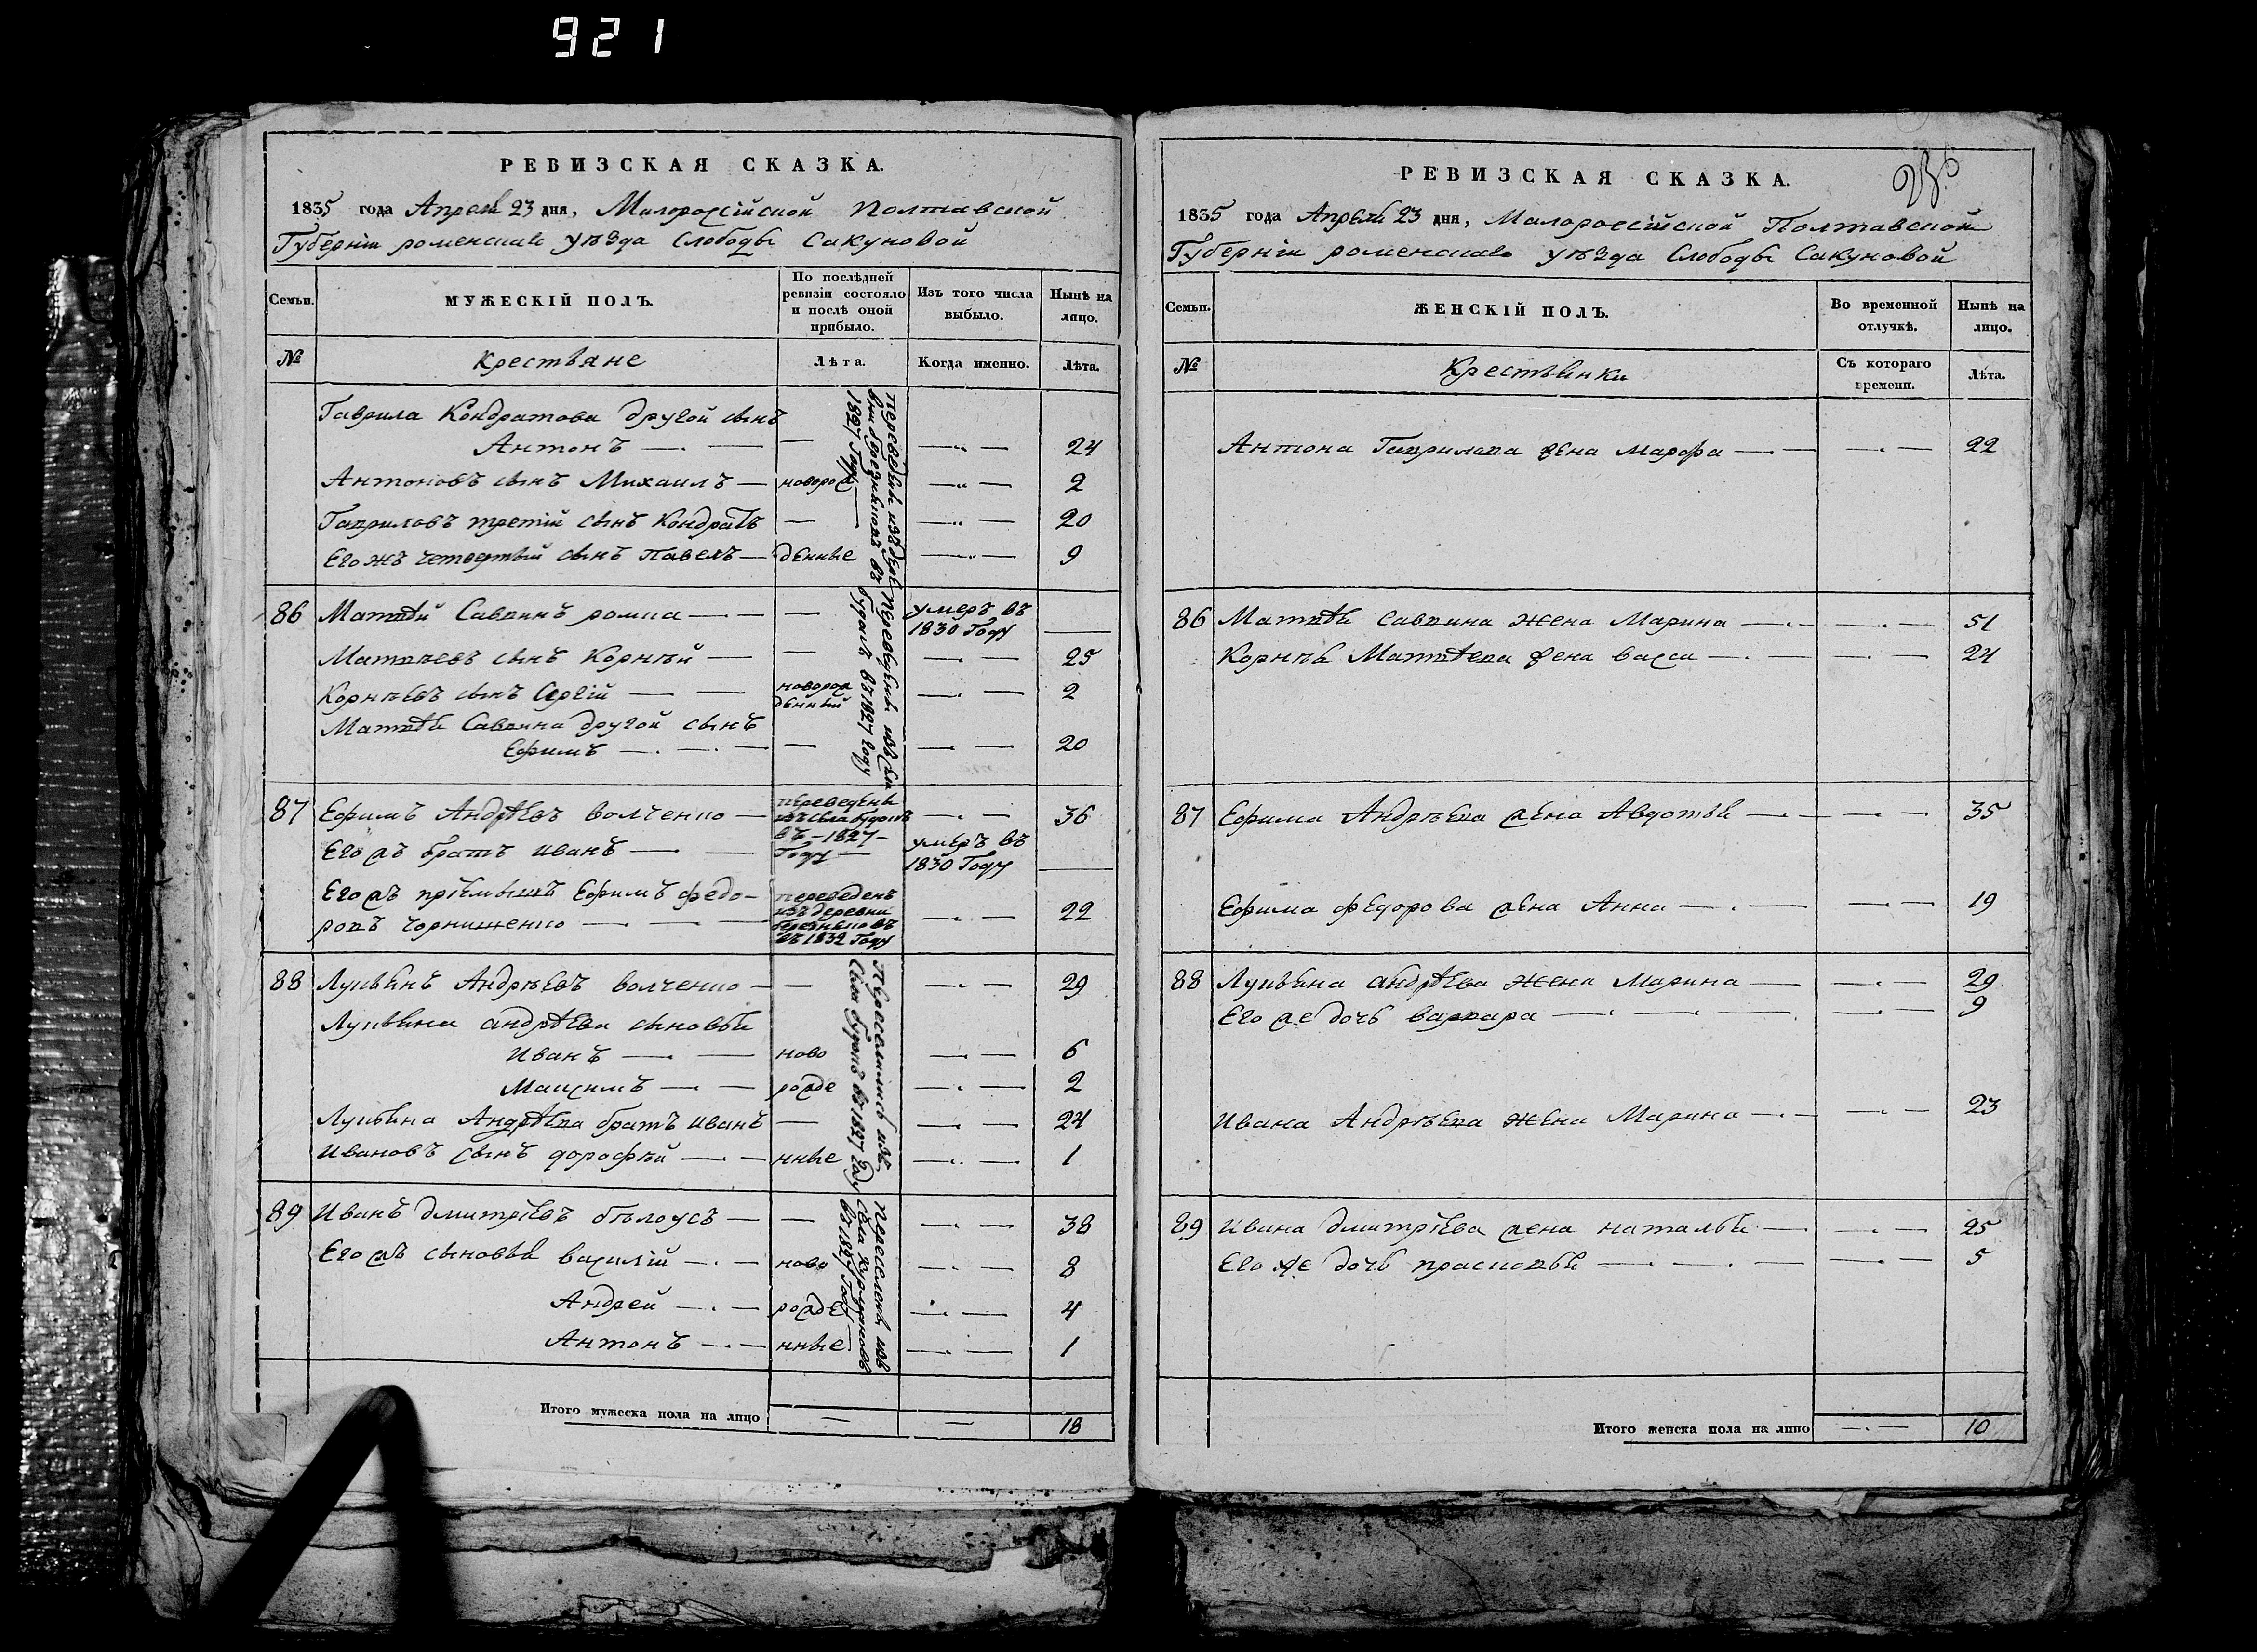 921
РЕВИЗСКАЯ СКАЗКА.
1835 года Апреля 23 дня, Малороссійской Полтавской
Губерніи роменскаго уѣзда Слободы Сакуновой
Семьи.
МУЖЕСКІЙ ПОЛЪ.
По послѣдней ревизіи состояло и послѣ оной прибыло.
Изъ того числа выбыло.
Нынѣ на лицо.
№
крестьяне
Лѣта.
Когда именно.
Лѣта.
Гаврила Кондратова другой сынъ
Антонъ — — — 24
Антоновъ сынъ Михаилъ — новорож — 2
Гавриловъ третій сынъ Кондратъ — — 20
Его жъ четвертый сынъ Павелъ — денные — 9
переведены изъ
в 1827 Году
86 Матвѣй Саввинъ — — умеръ въ
1830 Году
Матвѣевъ сынъ Корнѣй — — 25
Корнѣевъ сынъ Сергій — новорож
денный — 2
Матвѣя Саввина другой сынъ
Ефимъ — — — 20
переведены изъ села
Будокъ въ 1827 году
87 Ефимъ Андрѣевъ волченко — переведены
изъ села будокъ
въ — 1827 —
Году — 36
Его жъ братъ иванъ — умеръ въ
1830 Году
Его жъ пріемышъ Ефимъ федо-
ровъ чорнишенко — переведенъ
изъ деревни
въ 1832 Году — 22
88 Лукьянъ Андрѣевъ волченко — — 29
Лукьяна андрѣева сыновья
иванъ — ново — 6
Максимъ — рожде — 2
Лукьяна Андрѣева братъ иванъ — — 24
ивановъ сынъ дорофѣй — нные — 1
Переселились изъ
Села будокъ въ 1827 году
89 Иванъ дмитрѣевъ бѣлоусъ — — 38
Его жъ сыновья василій — ново — 8
Андрей — рожде — 4
Антонъ — нные — 1
преселены изъ
села
въ 1827 Году
Итого мужеска пола на лицо — — 18
РЕВИЗСКАЯ СКАЗКА.
1835 года Апреля 23 дня, Малороссійской Полтавской
Губерніи роменскаго уѣзда Слободы Сакуновой
Семьи.
ЖЕНСКІЙ ПОЛЪ.
Во временной отлучкѣ.
Нынѣ на лицо.
№
Крестьянки
Съ котораго времени.
Лѣта.
Антона Гаврилова жена Марфа — — 22
86 Матвѣя саввина жена Марина — — 51
Корнѣя Матвѣева жена васса — — 24
87 Ефима Андрѣева жена Авдотья — — 35
Ефима федорова жена Анна — — 19
88 Лукьяна андрѣева жена Марина — — 29
Его же дочь варвара — — 9
ивана Андрѣева жена Марина — — 23
89 ивана дмитрѣева жена наталья — — 25
Его же дочь прасковья — — 5
Итого женска пола на лицо — 10